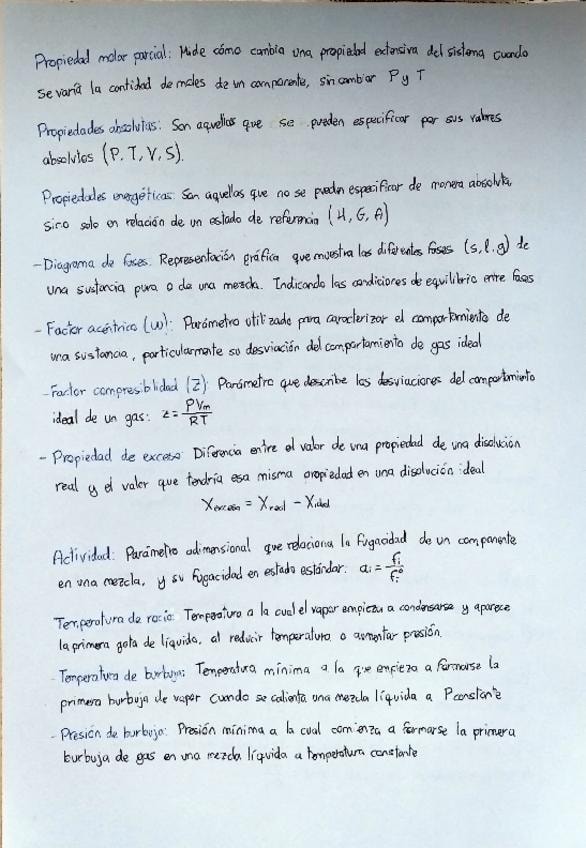 Propiedad molar parcial: Mide cómo cambia una propiedad extensiva del sistema cuando
se varía la cantidad de moles de un componente, sin cambiar P y T
Propiedades absolutas: Son aquellas que se pueden especificar por sus valores
absolutos (P, T, V, S).
Propiedades energéticas: Son aquellas que no se pueden especificar de manera absoluta,
sino solo en relación de un estado de referencia (H, G, A)
- Diagrama de fases. Representación gráfica que muestra las diferentes fases (s, l, g) de
una sustancia pura o de una mezcla. Indicando las condiciones de equilibrio entre fases
- Factor acéntrico (ω): Parámetro utilizado para caracterizar el comportamiento de
una sustancia, particularmente su desviación del comportamiento de gas ideal
- Factor compresibilidad (Z): Parámetro que describe las desviaciones del comportamiento
ideal de un gas: z = PVm / RT
- Propiedad de exceso: Diferencia entre el valor de una propiedad de una disolución
real y el valor que tendría esa misma propiedad en una disolución ideal
Xexceso = Xreal - Xideal
Actividad: Parámetro adimensional que relaciona la fugacidad de un componente
en una mezcla, y su fugacidad en estado estándar. ai = fi / fi°
Temperatura de rocío: Temperatura a la cual el vapor empieza a condensarse y aparece
la primera gota de líquido, al reducir temperatura o aumentar presión.
- Temperatura de burbuja: Temperatura mínima a la que empieza a formarse la
primera burbuja de vapor cuando se calienta una mezcla líquida a P constante
- Presión de burbuja: Presión mínima a la cual comienza a formarse la primera
burbuja de gas en una mezcla líquida a temperatura constante